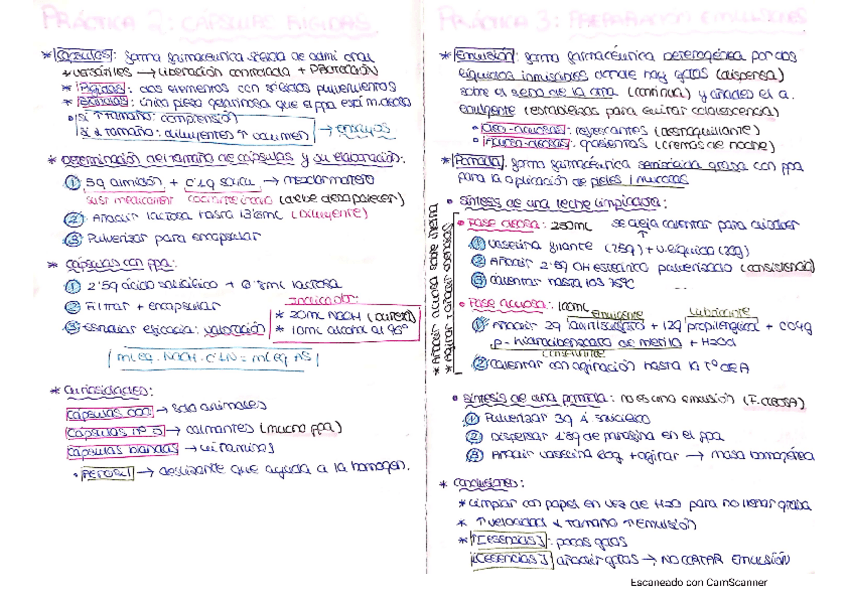 PRÁCTICA 2: CÁPSULAS RÍGIDAS
* Cápsulas: forma farmacéutica sólida de admi oral
* versátiles → Liberación controlada + Protección
* Rígidas: dos elementos con sólidos pulverulentos
* Blandas: única pieza gelatinosa que el ppa está
• si ↑ tamaño: compresión
si ↓ tamaño: diluyentes ↑ volumen → ensayos
* Determinación del tamaño de cápsulas y su elaboración:
① 5g almidón + 0'1g → mezclar mortero
(debe desaparecer)
② Añadir lactosa hasta (diluyente)
③ Pulverizar para encapsular
* Cápsulas con ppa:
① 2'5g ácido salicílico + lactosa
② Filtrar + encapsular
③ Estudiar eficacia: valoración
Indicador:
* 20mL NaOH
* 10mL alcohol al 90°
mLeq. NaOH · 0'1N = mLeq AS
* Curiosidades:
Cápsulas 000 → solo animales
Cápsulas nº 5 → calmantes (mucho ppa)
Cápsulas blandas → vitaminas
• Aerosil → deslizante que ayuda a la homogen.
PRÁCTICA 3: PREPARACIÓN EMULSIONES
* Emulsión: forma farmacéutica heterogénea por dos
líquidos inmiscibles donde hay gotas (dispersa)
sobre el seno de la otra (continua) y añades el a.
emulgente (estabilizas para evitar coalescencia)
• Oleo-acuosas: refrescantes (desmaquillante)
• Acuoso-oleosas: grasientos (cremas de noche)
* Pomada: forma farmacéutica semisólida grasa con ppa
para la aplicación de pieles / mucosas
• Síntesis de una leche limpiadora:
• Fase oleosa: 250mL se deja calentar para añadir
① Vaselina filante (25g) + v. líquida (20g)
② Añadir 2'5g OH estearílico pulverizado (consistencia)
③ Calentar hasta los 75ºC
• Fase acuosa: 100mL
emulgente lubricante
① Añadir 2g laurilsulfato + 12g propilenglicol + 0'04g
p-hidroxibenzoato de metilo + H2Od
② Calentar con agitación hasta la Tº de A
* Añadir acuosa sobre oleosa
* Agitar + añadir
• Síntesis de una pomada: no es una emulsión (F. OLEOSA)
① Pulverizar 3g Á salicílico
② Dispersar 1'8g de parafina en el ppa
③ Añadir vaselina + agitar → masa homogénea
* Conclusiones:
* Limpiar con papel en vez de H2O para no llenar grasa
* ↑ velocidad ↓ tamaño ↑ emulsión
* ↑[esencias]: pocas gotas
↓[esencias] añadir gotas → NO CORTAR EMULSIÓN
Escaneado con CamScanner